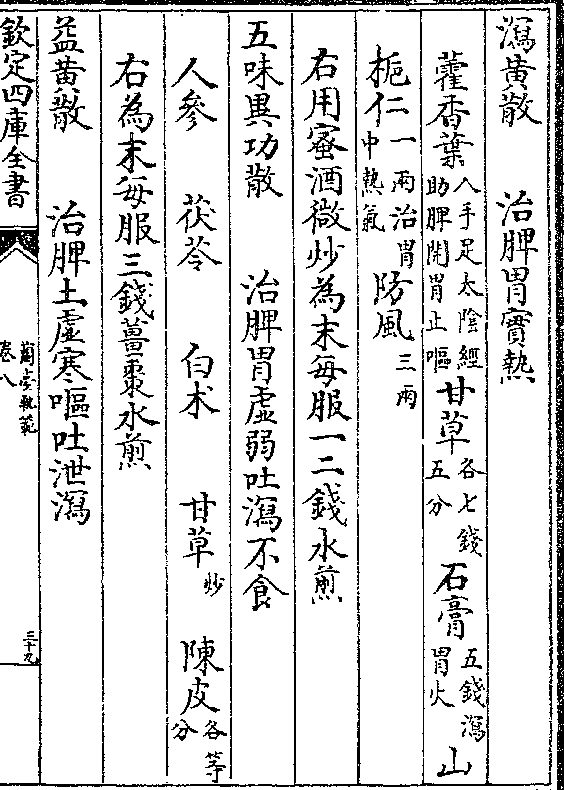 瀉黄散　治脾胃實熱
藿香葉入手足太陰經助脾開胃止嘔甘草各七錢五分石膏五錢瀉胃火山
梔仁一兩治胃中熱氣防風三兩
右用蜜酒微炒為末每服一二錢水煎
五味異功散　治脾胃虛弱吐瀉不食
人參　茯苓　白朮　甘草炒　陳皮各等分
右為末每服三錢薑棗水煎
益黄散　治脾土虛寒嘔吐泄瀉
欽定四庫全書
蘭臺軌範
卷八
三十九